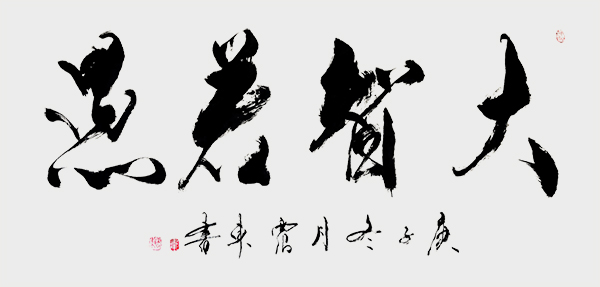 大智若愚
庚子冬月東書